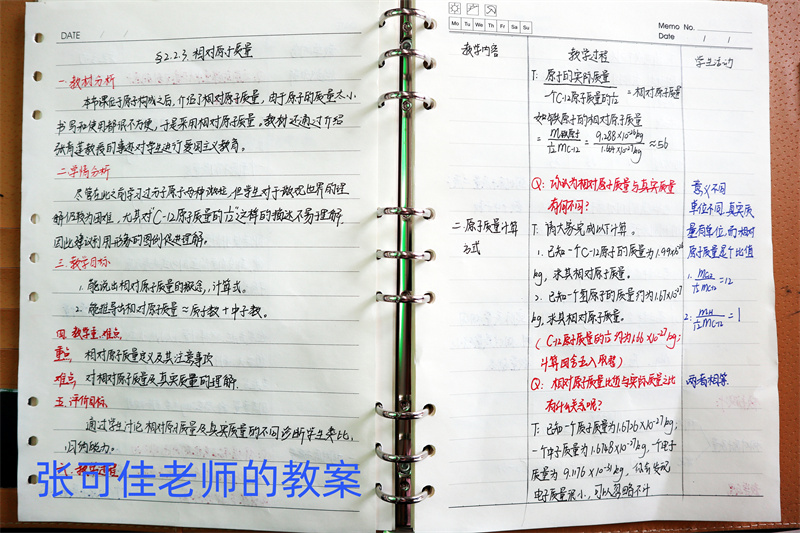 DATE / /
§2.2.3 相对原子质量
一.教材分析
本节课位于原子构成之后,介绍了相对原子质量,由于原子的质量太小
书写和使用都很不方便,于是采用相对原子质量。教材还通过介绍
张青莲教授的事迹对学生进行爱国主义教育。
二.学情分析
尽管在此之前学习过分子原子两种微粒,但学生对于微观世界的理
解仍较为困难,尤其对“C-12原子质量的1/12”这样的描述不易理解
因此建议利用形象的图例促进理解。
三.教学目标
1.能说出相对原子质量的概念,计算式。
2.能推导出相对原子质量≈质子数+中子数。
四.教学重、难点
重点 相对原子质量定义及其注意事项
难点 对相对原子质量及真实质量的理解.
五.评价目标
通过学生讨论相对原子质量及真实质量的不同诊断学生类比,
归纳能力。
张可佳老师的教案
Mo Tu We Th Fr Sa Su
Memo No.
Date / /
教学内容 教学过程 学生活动
T: 原子的实际质量/一个C-12原子质量的1/12 = 相对原子质量
如铁原子的相对原子质量
= m铁原子/(1/12 mC-12) = 9.288×10⁻²⁶kg/1.661×10⁻²⁷kg ≈56
Q: 你认为相对原子质量与真实质量
有何不同?
意义不同
单位不同.真实质
量有单位,而相对
原子质量是个比值
二.原子质量计算
方式
T: 请大家完成以下计算。
1.已知一个C-12原子的质量为1.99×10⁻²⁶
kg,求其相对原子质量。
1. mC-12/(1/12 mC-12) =12
2.已知一个氢原子的质量约为1.67×10⁻²⁷
kg,求其相对原子质量。
2. mH/(1/12 mC-12) =1
(C-12原子质量的1/12约为1.66×10⁻²⁷kg;
计算四舍五入取整)
Q: 相对原子质量比值与实际质量之比
有什么关系呢?
两者相等.
T: 已知一个质子质量为1.6726×10⁻²⁷kg;
一个中子质量为1.6748×10⁻²⁷kg,一个电子
质量为9.1176×10⁻³¹kg,
电子质量很小,可以忽略不计